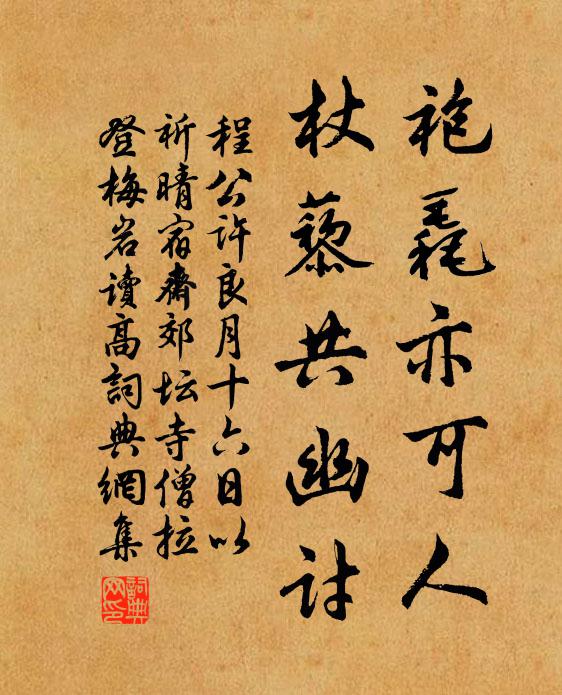 袍毳亦可人
杖藜共幽讨
程公许良月十六日以
祈晴宿齋郊坛寺僧拉
登梅岩讀高詞典網集
詞典網印